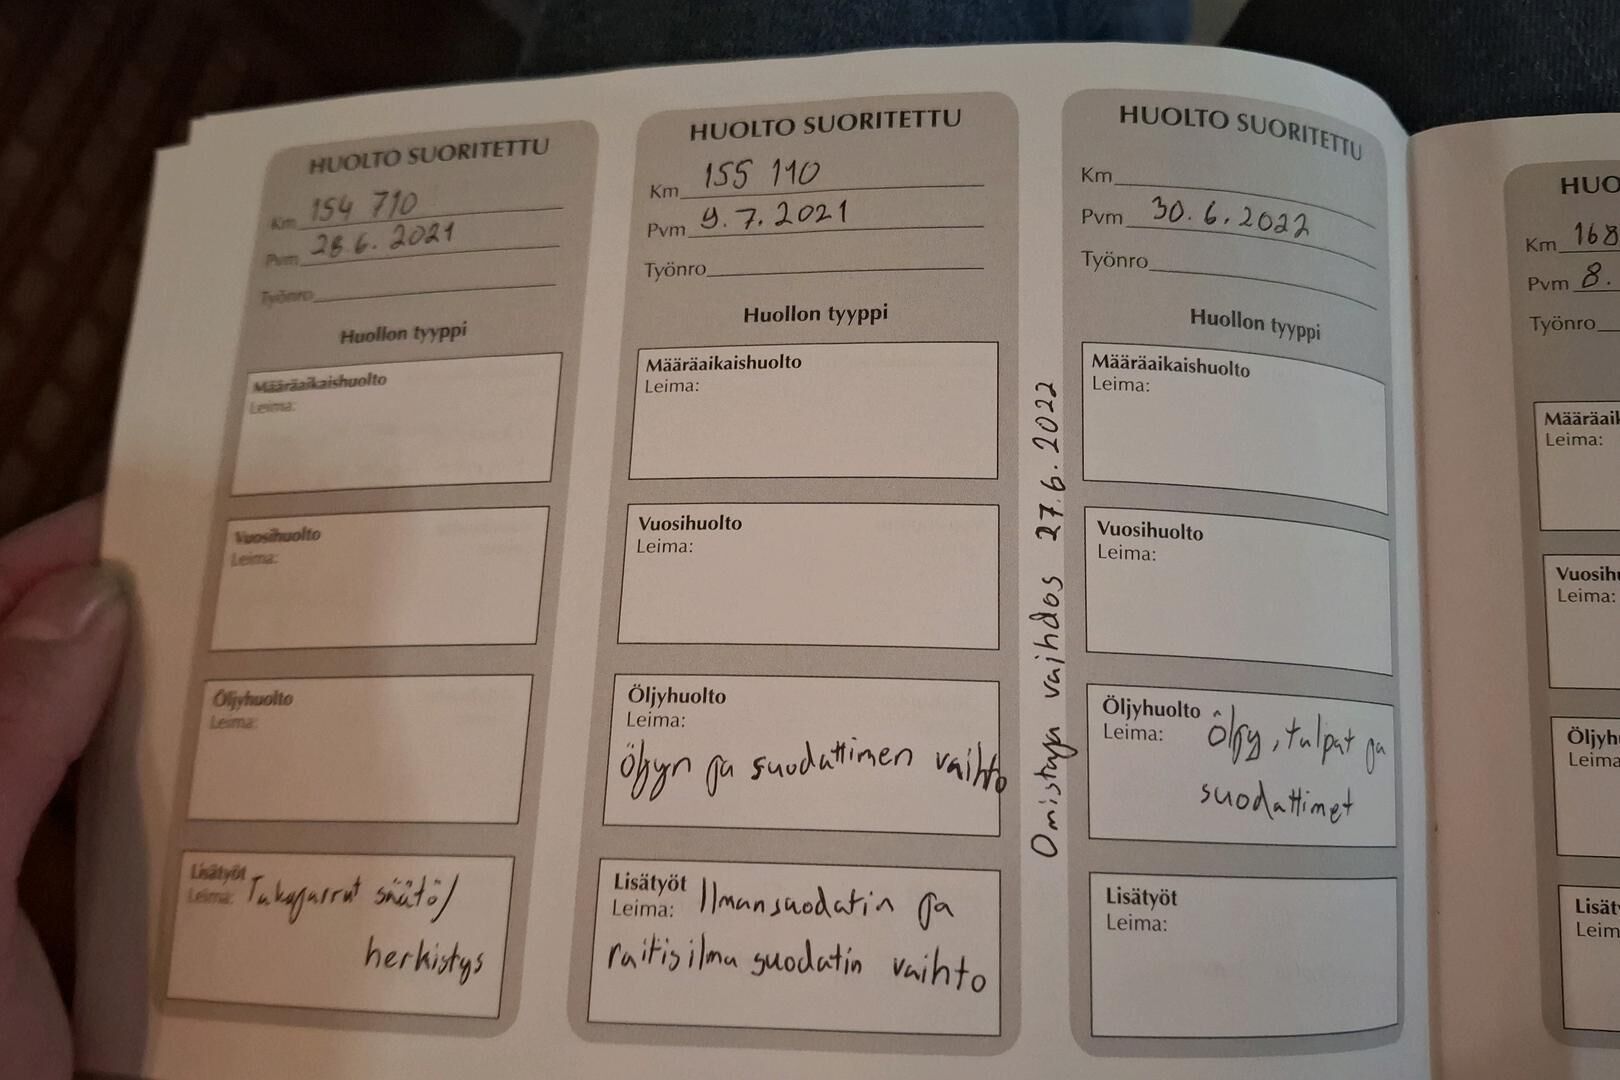 HUOLTO SUORITETTU
Km 154 710
Pvm 28.6.2021
Työnro
Huollon tyyppi
Määräaikaishuolto
Leima:
Vuosihuolto
Leima:
Öljyhuolto
Leima:
Lisätyöt
Leima: Takajarrut säätö/
herkistys
HUOLTO SUORITETTU
Km 155 110
Pvm 9.7.2021
Työnro
Huollon tyyppi
Määräaikaishuolto
Leima:
Vuosihuolto
Leima:
Öljyhuolto
Leima:
öljyn ja suodattimen vaihto
Lisätyöt
Leima: Ilmansuodatin ja
raitisilma suodatin vaihto
Omistaja vaihdos 27.6.2022
HUOLTO SUORITETTU
Km
Pvm 30.6.2022
Työnro
Huollon tyyppi
Määräaikaishuolto
Leima:
Vuosihuolto
Leima:
Öljyhuolto
Leima: Öljy, tulpat ja
suodattimet
Lisätyöt
Leima:
HUO
Km 168
Pvm 8.
Työnro
Määräaik
Leima:
Vuosihu
Leima:
Öljyh
Leima
Lisät
Leim